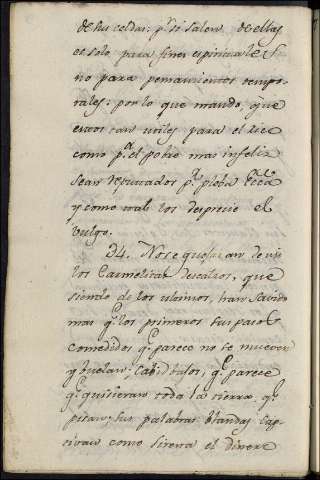 de sus celdas: pr. si salen de ellas
es solo para fines espirituales, y
no para pensamientos tempo-
rales: por lo que mando, que
estos tan utiles para el rico
como pa. el pobre mas infeliz
sean reputados pr. plebe
y como tal los desprecie el
vulgo.
34. No se quejaran de mi
los Carmelitas descalzos, que
siendo de los ultimos, han savido
mas qe. los primeros sus pasos
comedidos qe. parece no se mueven
y buelan, Cabisbajos, qe. parece
qe. quisieran toda la tierra qe.
pisan; sus palabras blandas cap-
tivan como sirena el dinero